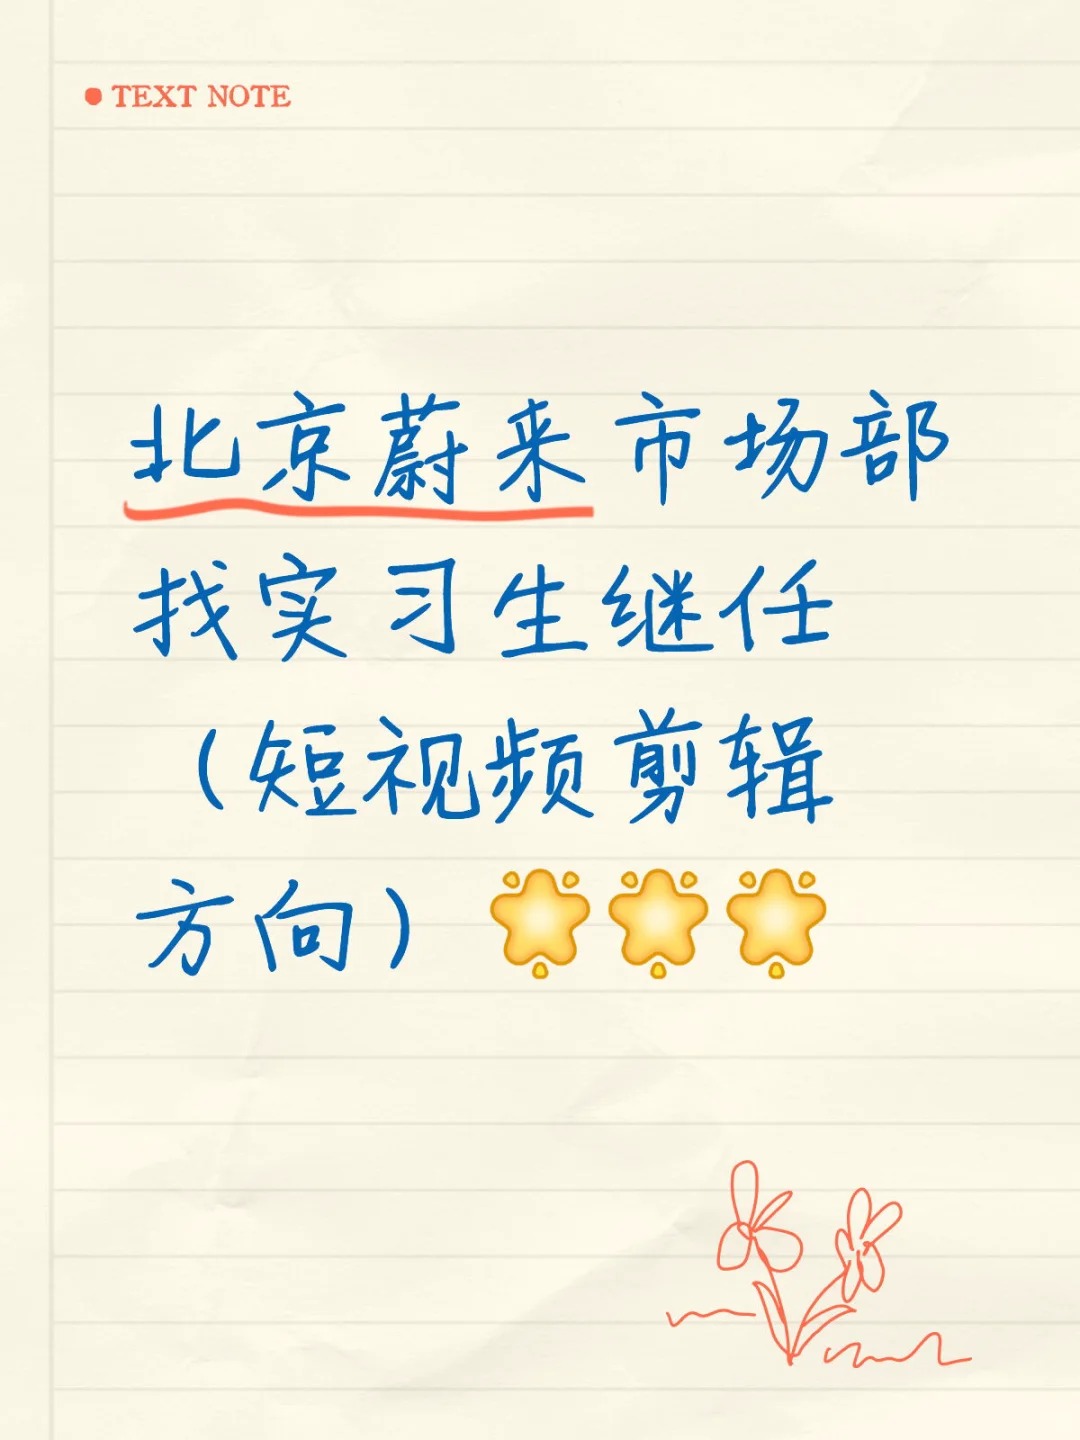 TEXT NOTE
北京蔚来市场部
找实习生继任
（短视频剪辑
方向）🌟🌟🌟